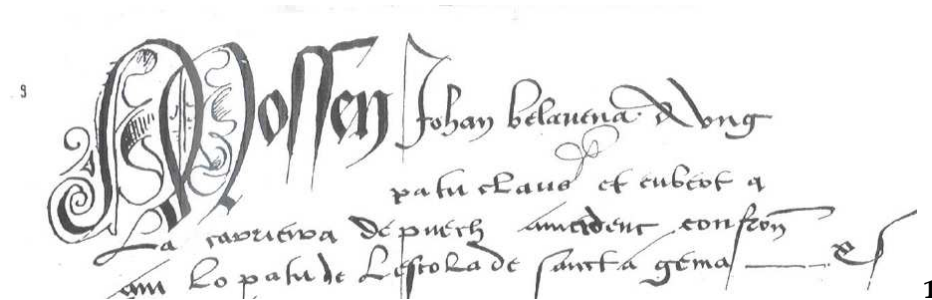 9
Mossen Johan belavena d ung
patu claus et cubeot a
La carrieyra de puech amadenc confron
am lo patu de Lescola de sancta gema
1